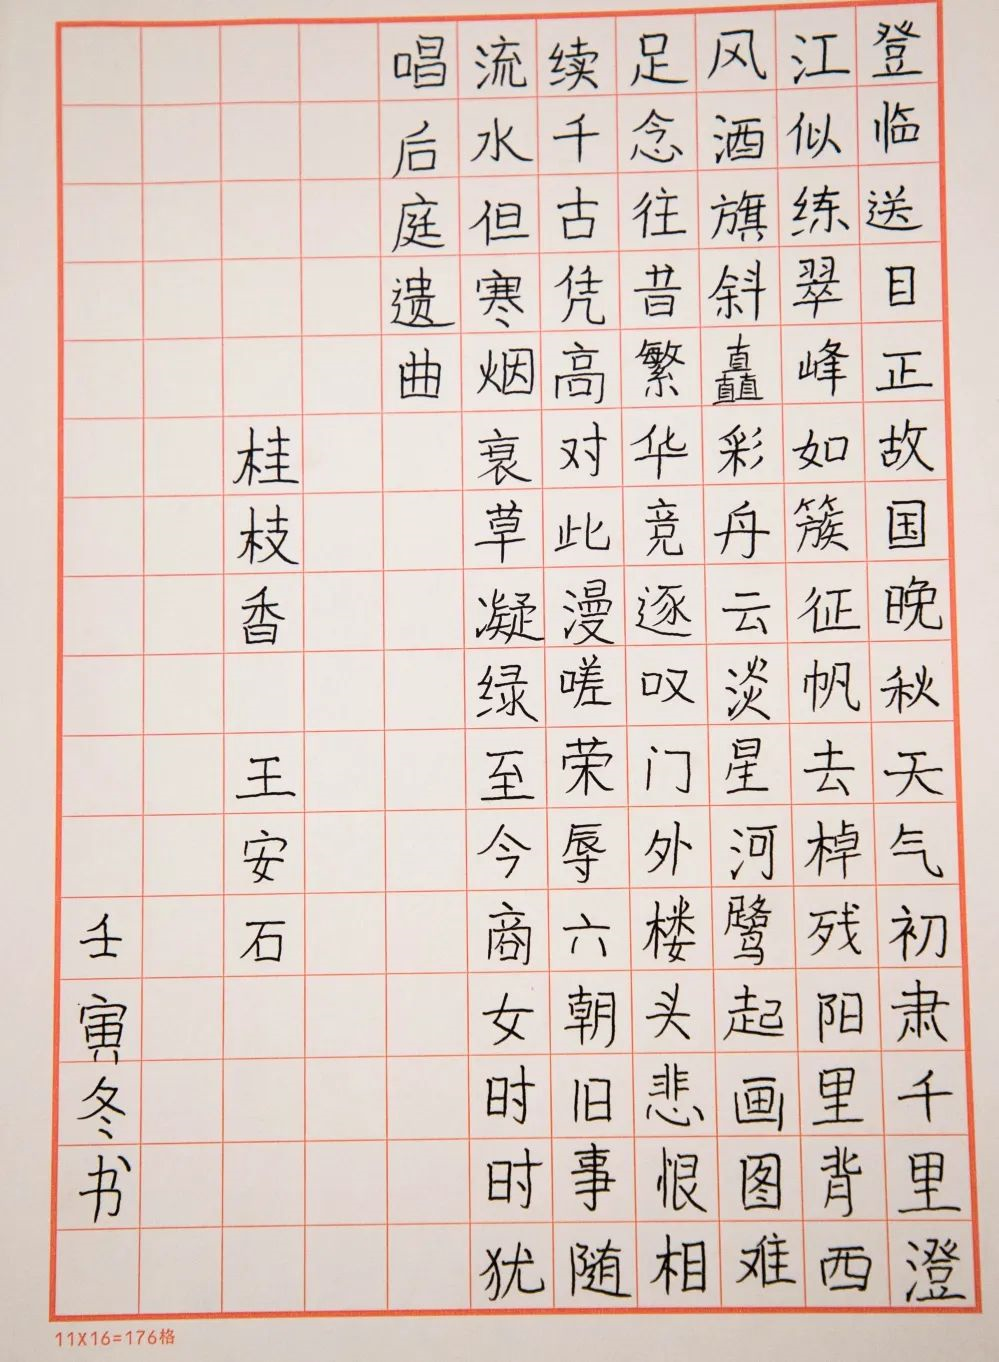 登临送目正故国晚秋天气初肃千里澄
江似练翠峰如簇征帆去棹残阳里背西
风酒旗斜矗彩舟云淡星河鹭起画图难
足念往昔繁华竞逐叹门外楼头悲恨相
续千古凭高对此漫嗟荣辱六朝旧事随
流水但寒烟衰草凝绿至今商女时时犹
唱后庭遗曲
桂枝香 王安石
壬寅冬书
11X16=176格